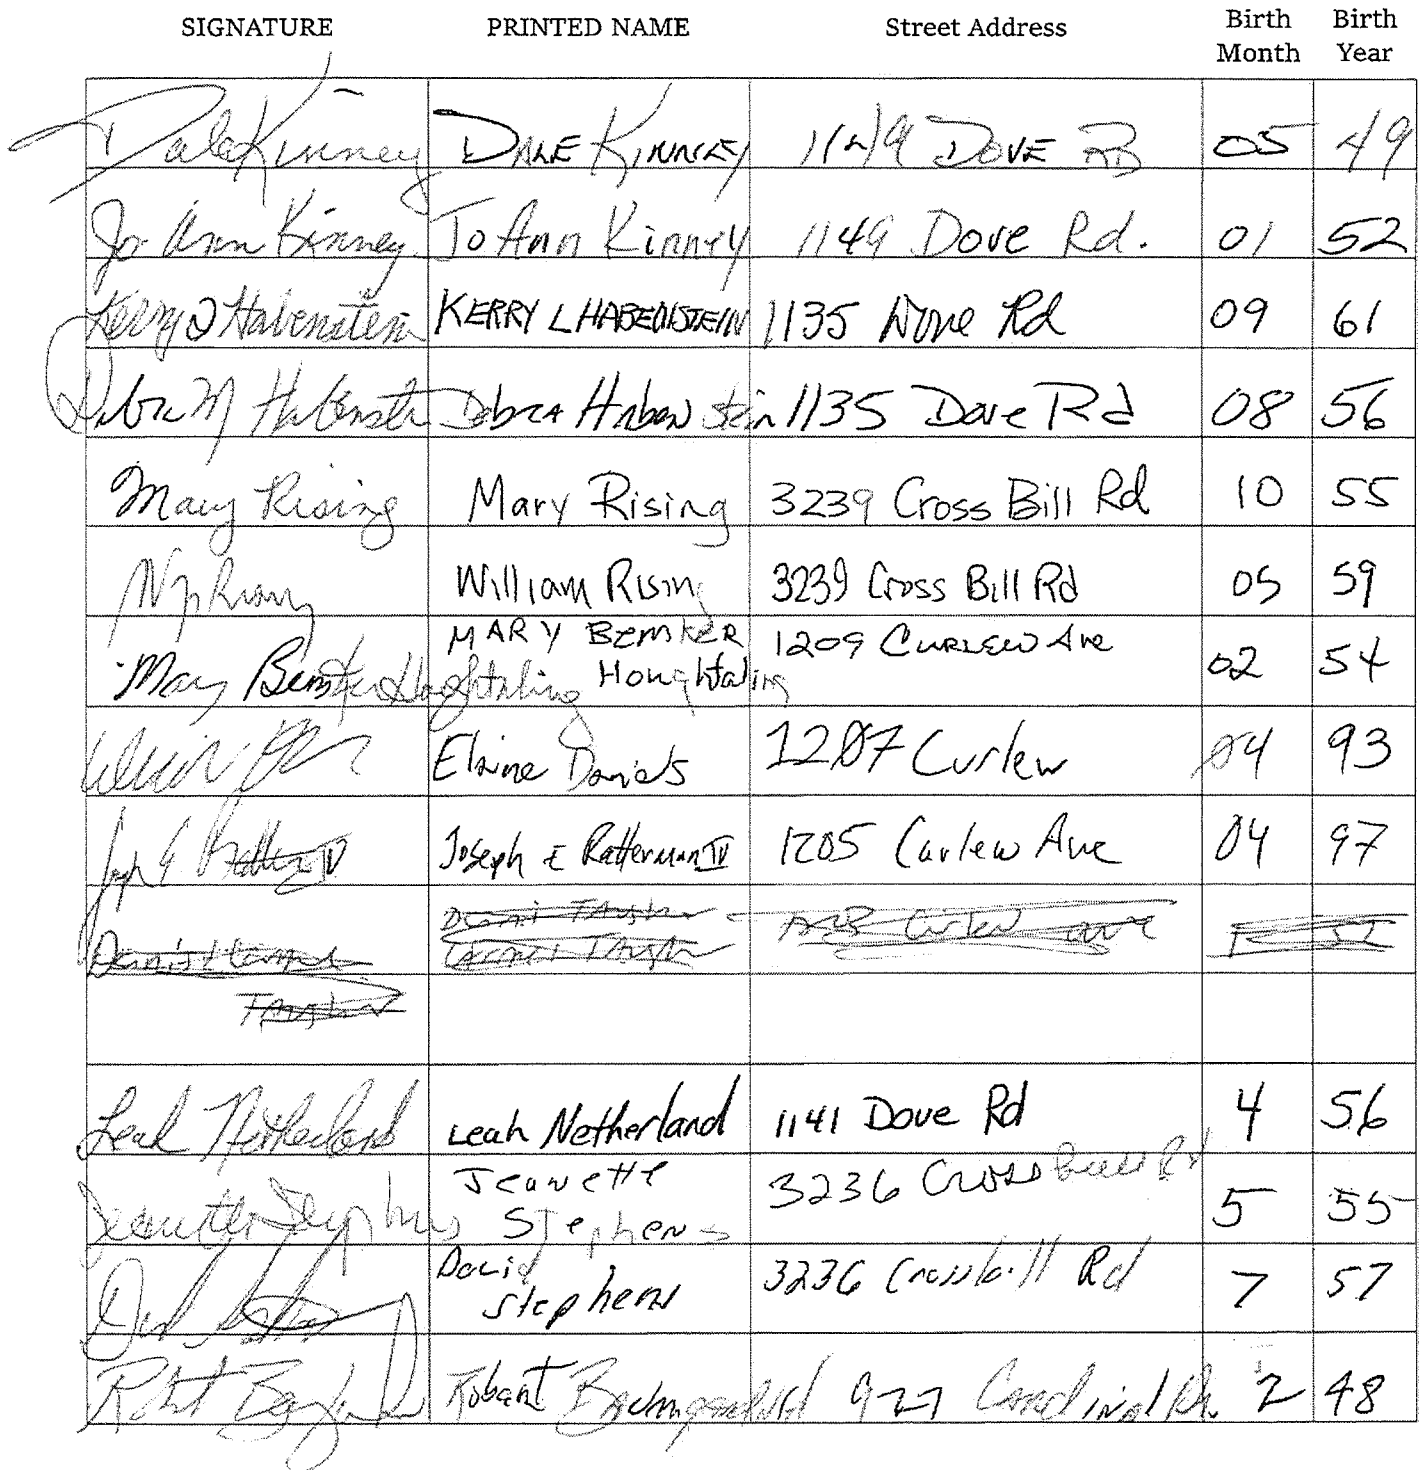 SIGNATURE PRINTED NAME Street Address Birth Month Birth Year
Dale Kinney DALE KINNEY 1149 DOVE RD 05 49
Jo Ann Kinney Jo Ann Kinney 1149 Dove Rd. 01 52
Kerry L Habenstein KERRY L HABENSTEIN 1135 Dove Rd 09 61
Debra M Habenstein Debra Habenstein 1135 Dove Rd 08 56
Mary Rising Mary Rising 3239 Cross Bill Rd 10 55
William Rising 3239 Cross Bill Rd 05 59
Mary Bemker Houghtaling MARY BEMKER Houghtaling 1209 CURLEW Ave 02 54
Elaine Daniels 1207 Curlew 04 93
Joseph E Ratterman IV 1205 Curlew Ave 04 97
Curlew ave
Leah Netherland Leah Netherland 1141 Dove Rd 4 56
Jeanette Stephens Jeanette Stephens 3236 Crossbill Rd 5 55
David Stephens 3236 Crossbill Rd 7 57
Robert Robert 927 Cardinal Dr. 2 48